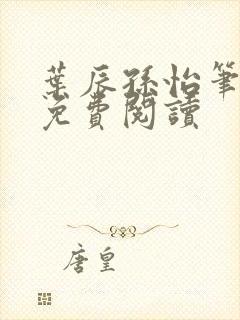 葉辰孫怡筆
免費閱讀
唐皇